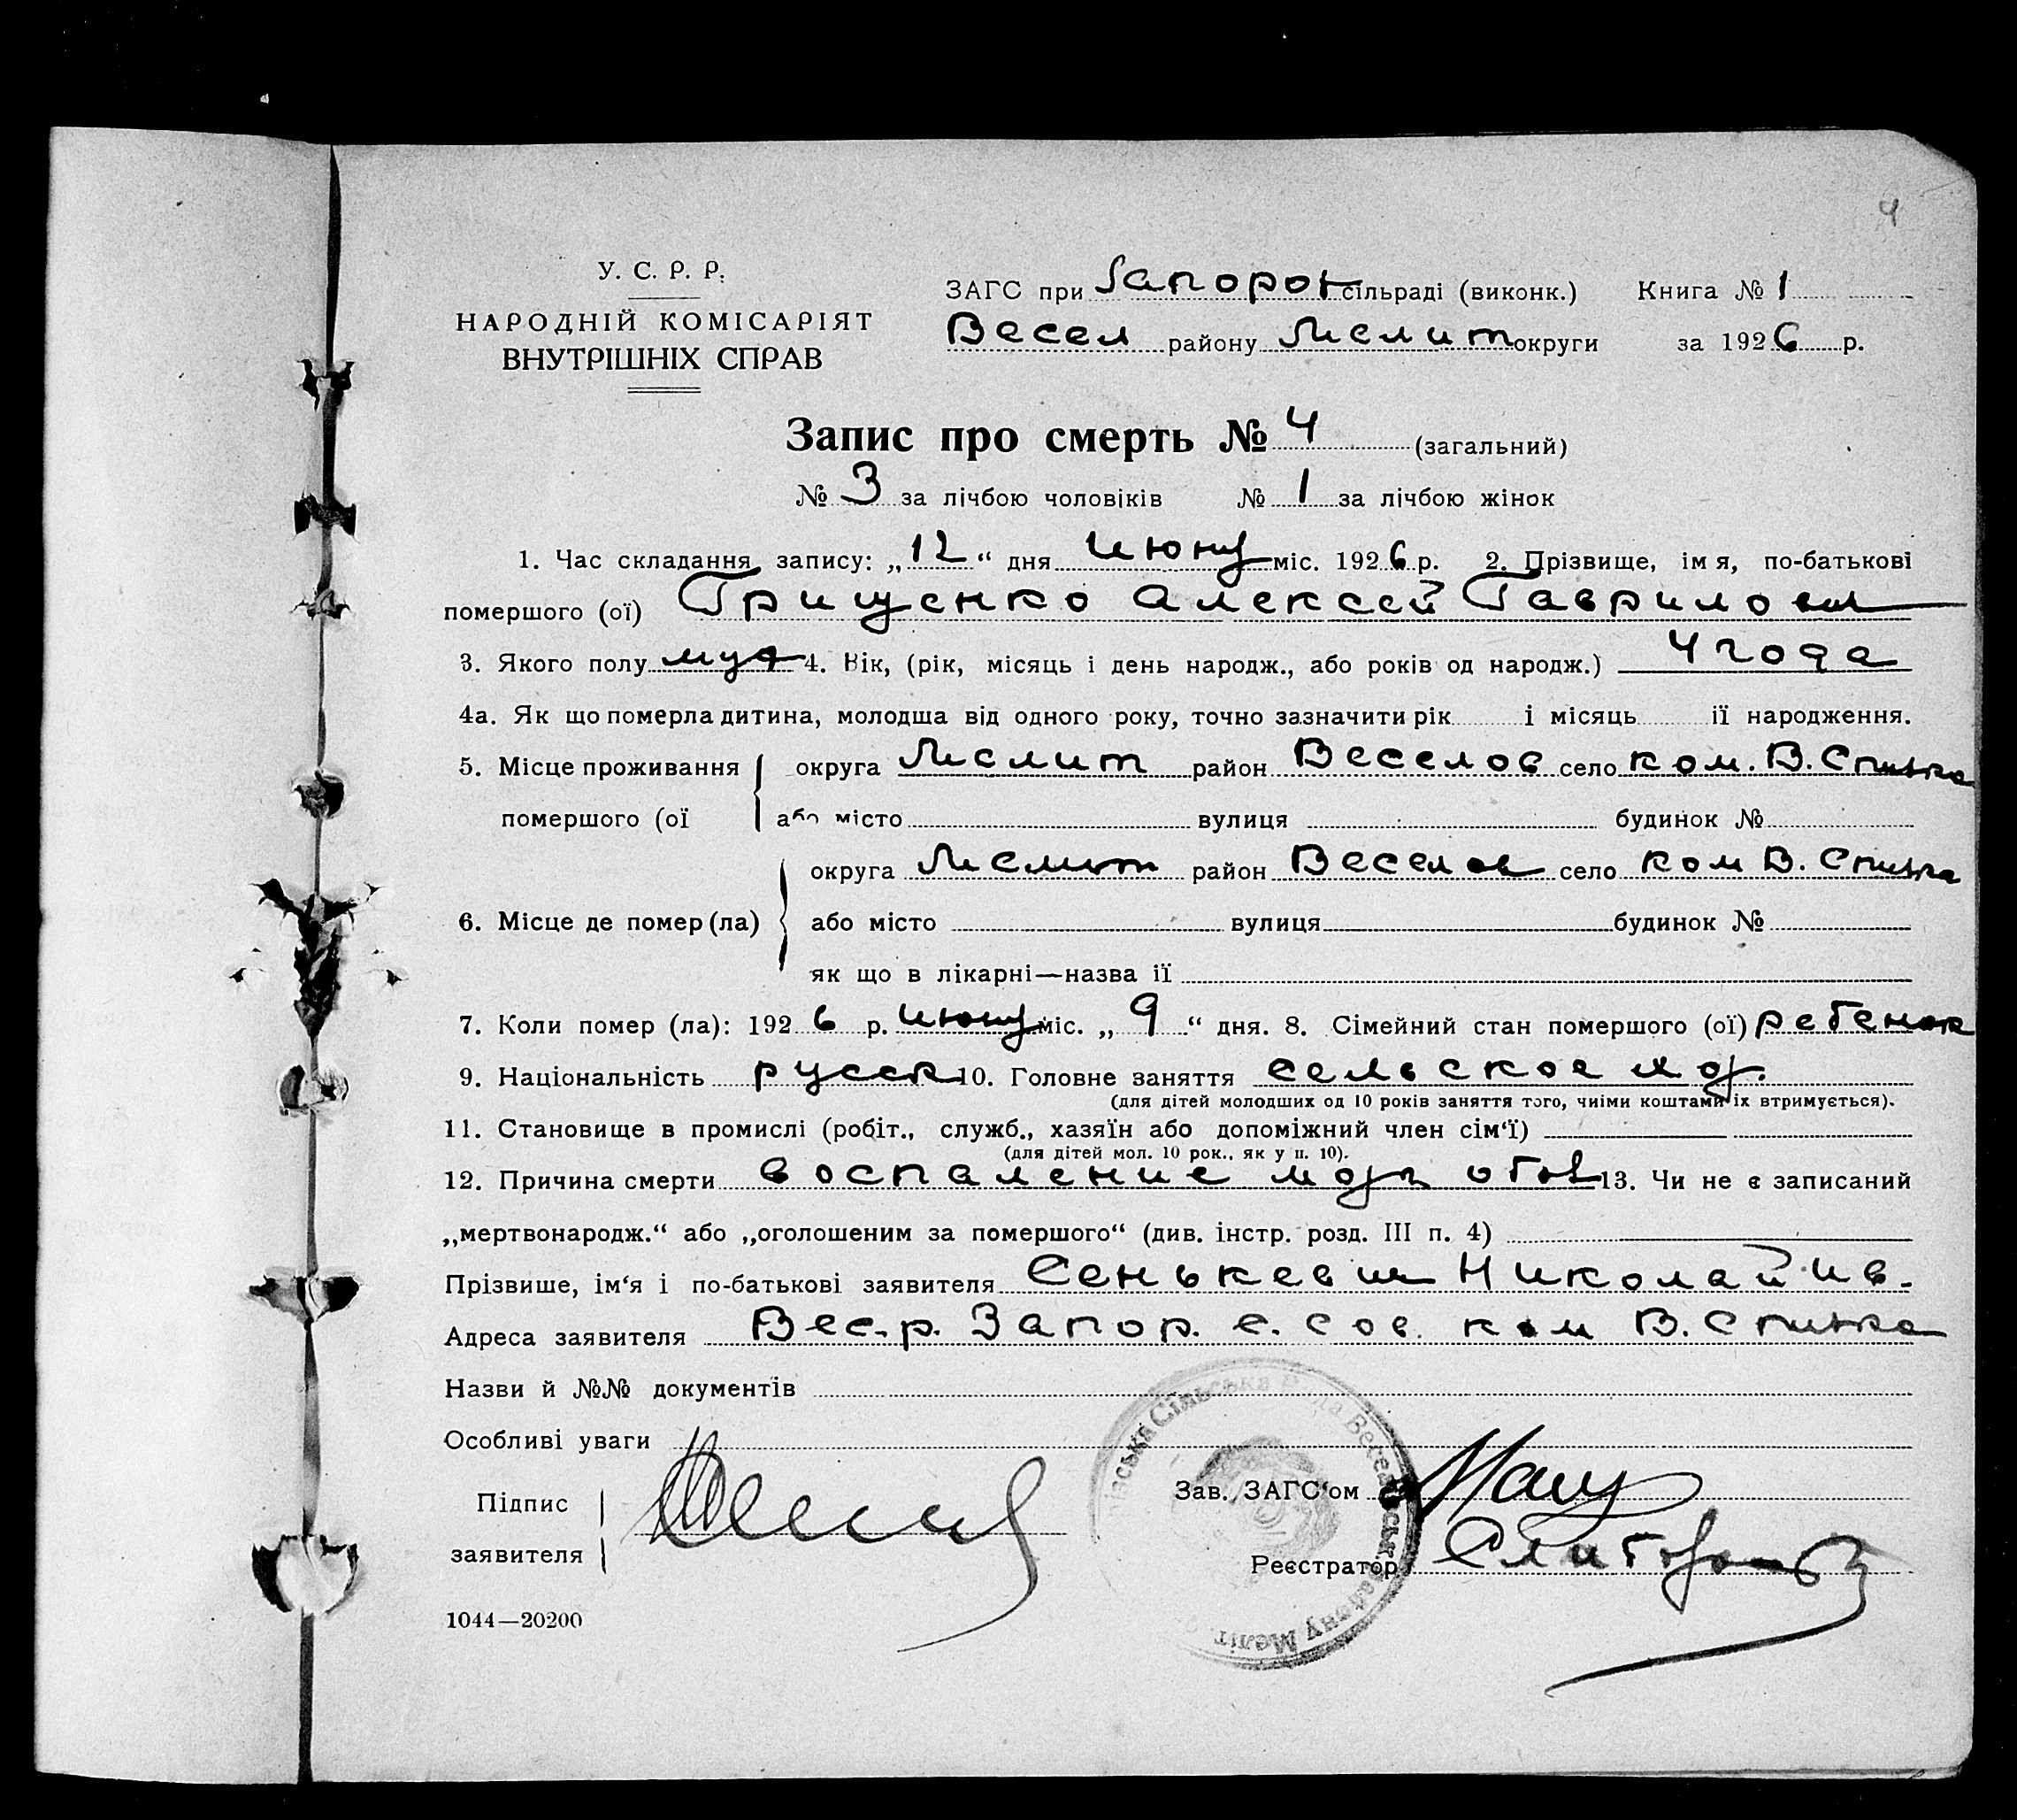 4
У. С. Р. Р.
НАРОДНІЙ КОМІСАРІЯТ
ВНУТРІШНІХ СПРАВ
ЗАГС при Запорож сільраді (виконк.) Книга № 1
Весел району Мелит округи за 1926 р.
Запис про смерть № 4 (загальний)
№ 3 за лічбою чоловіків № 1 за лічбою жінок
1. Час складання запису: „12“ дня июня міс. 1926 р. 2. Прізвище, імя, по-батькові
помершого (ої) Грищенко Алексей Гаврилович
3. Якого полу муж 4. Вік, (рік, місяць і день народж., або років од народж.) 4 года
4а. Як що померла дитина, молодша від одного року, точно зазначити рік і місяць ії народження.
5. Місце проживання округа Мелит район Веселов село ком. В. Спилка
помершого (ої або місто вулиця будинок №
округа Мелит район Веселов село ком В. Спилка
6. Місце де помер (ла) або місто вулиця будинок №
як що в лікарні—назва ії
7. Коли помер (ла): 1926 р. июня міс. „9“ дня. 8. Сімейний стан помершого (ої) ребенок
9. Національність русск 10. Головне заняття сельское хоз.
(для дітей молодших од 10 років заняття того, чиїми коштами іх втримується).
11. Становище в промислі (робіт., служб., хазяїн або допоміжний член сім‘ї)
(для дітей мол. 10 рок., як у п. 10).
12. Причина смерти воспаление мозг обол 13. Чи не є записаний
„мертвонародж.“ або „оголошеним за помершого“ (див. інстр. розд. III п. 4)
Прізвише, ім‘я і по-батькові заявителя Сенькевич Николай Ив.
Адреса заявителя Вес.р. Запор. с. сов. ком В. Спилка
Назви й №№ документів
Особливі уваги
Підпис
заявителя
Зав. ЗАГС‘ом
Реєстратор
1044—20200